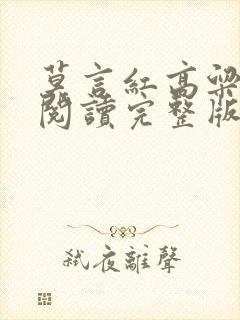 莫言紅高粱
閱讀完整版
弒夜離聲